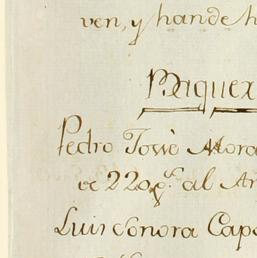 ven, y han de h
Baquex
Pedro Josè Mora
de 220 p.s al A
Luis Sonora Cap